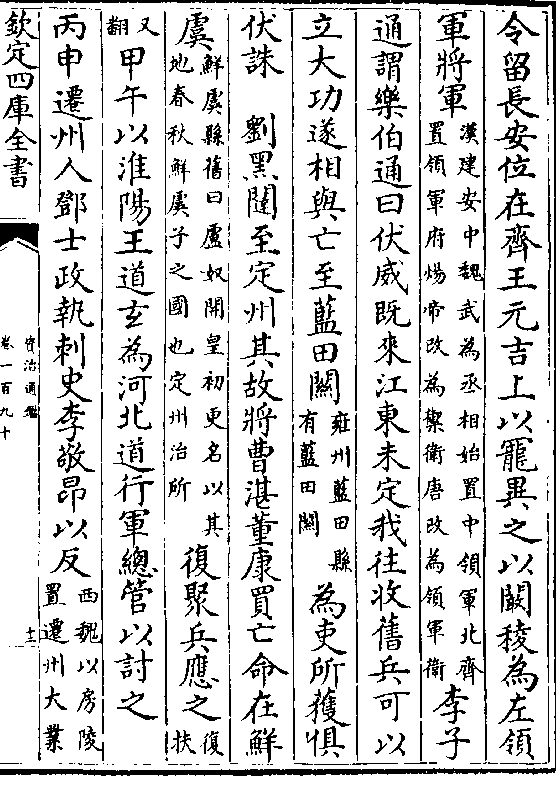 令留長安位在齊王元吉上以寵異之以闞稜為左領
軍將軍漢建安中魏武為丞相始置中領軍北齊
置領軍府煬帝改為禦衛唐改為領軍衛李子
通謂樂伯通曰伏威既來江東未定我往收舊兵可以
立大功遂相與亡至藍田關雍州藍田縣
有藍田關為吏所獲俱
伏誅　劉黑闥至定州其故將曹湛董康買亡命在鮮
虞鮮虞縣舊曰盧奴開皇初更名以其
地春秋鮮虞子之國也定州治所復聚兵應之復扶
又翻甲午以淮陽王道玄為河北道行軍總管以討之
丙申遷州人鄧士政執刺史李敬昂以反西魏以房陵
置遷州大業
欽定四庫全書
資治通鑑
卷一百九十
十二